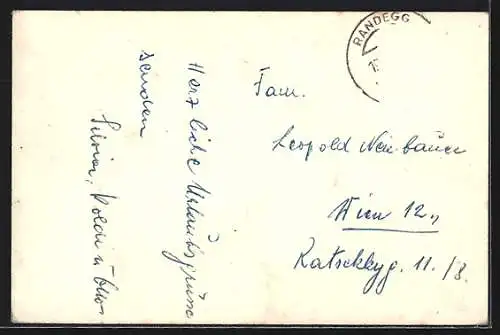 RANDEGG
Herzliche Urlaubsgrüsse
senden
Poldi u.
Fam.
Leopold Neubauer
Wien 12.,
Ratschkyg. 11./8.